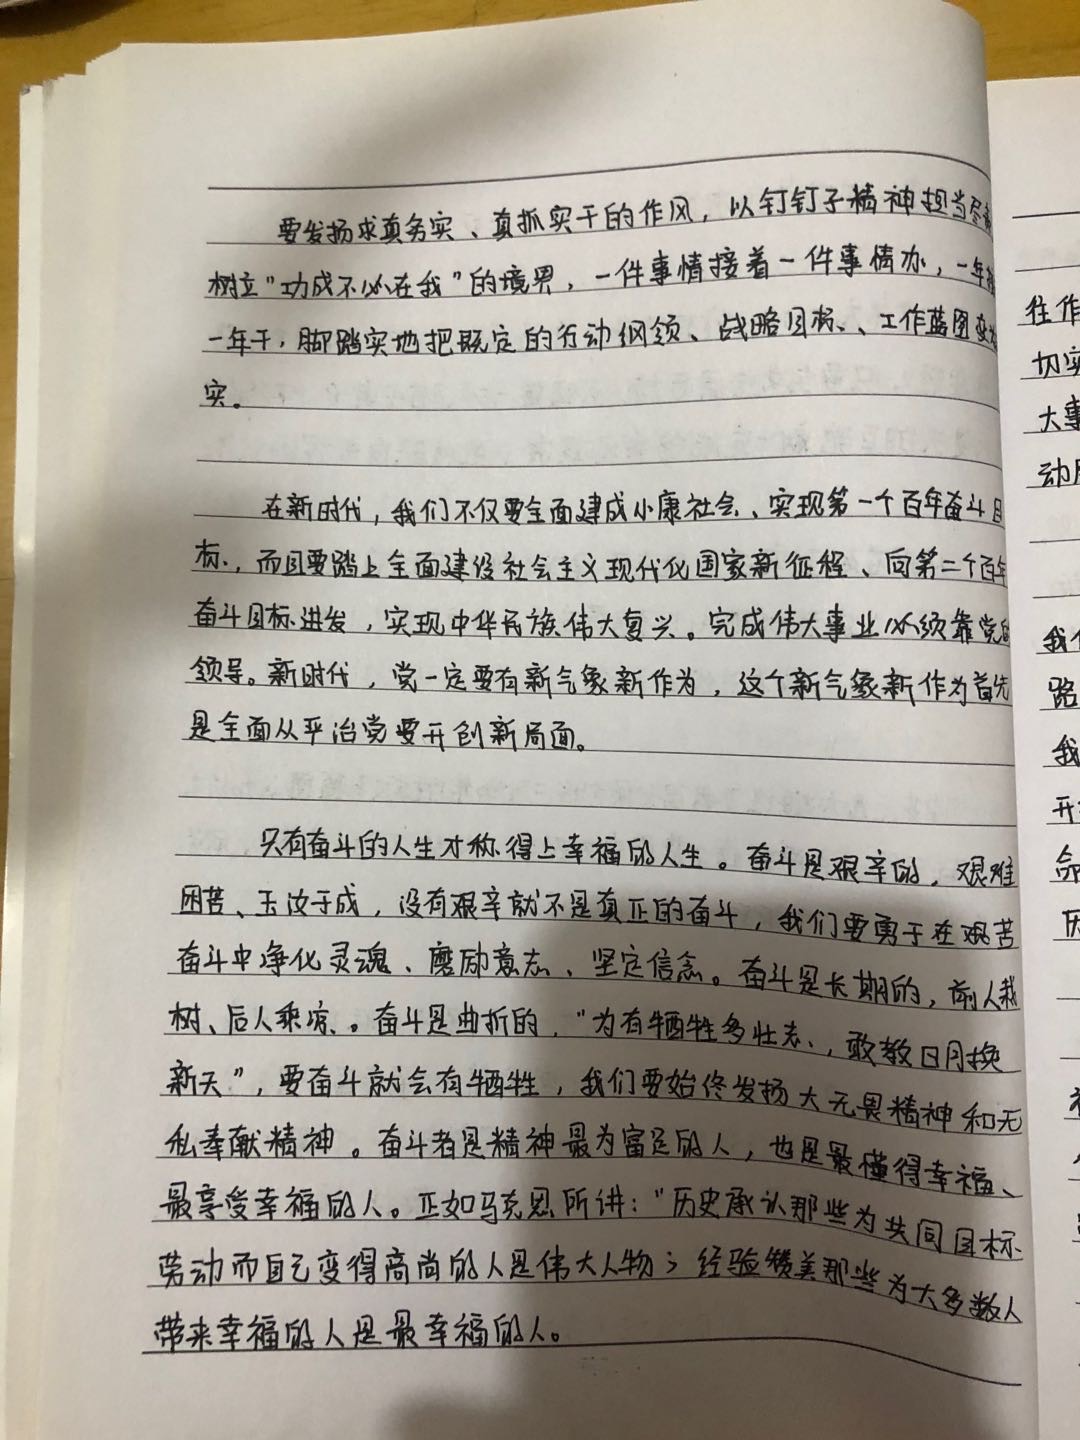 要发扬求真务实、真抓实干的作风，以钉钉子精神担当尽
树立“功成不必在我”的境界，一件事情接着一件事情办，一年接
一年干，脚踏实地把既定的行动纲领、战略目标、工作蓝图变为
实。
在新时代，我们不仅要全面建成小康社会、实现第一个百年奋斗目
标，而且要踏上全面建设社会主义现代化国家新征程、向第二个百年
奋斗目标进发，实现中华民族伟大复兴。完成伟大事业必须靠党的
领导。新时代，党一定要有新气象新作为，这个新气象新作为首先
是全面从平治党要开创新局面。
只有奋斗的人生才称得上幸福的人生。奋斗是艰辛的，艰难
困苦、玉汝于成，没有艰辛就不是真正的奋斗，我们要勇于在艰苦
奋斗中净化灵魂、磨励意志、坚定信念。奋斗是长期的，前人栽
树、后人乘凉、。奋斗是曲折的，“为有牺牲多壮志，敢教日月换
新天”，要奋斗就会有牺牲，我们要始终发扬大无畏精神和无
私奉献精神。奋斗者是精神最为富足的人，也是最懂得幸福、
最享受幸福的人。正如马克思所讲：“历史承认那些为共同目标
劳动而自己变得高尚的人是伟大人物；经验赞美那些为大多数人
带来幸福的人是最幸福的人。
往作
切实
大事
动
我们
路
我
开
命
历